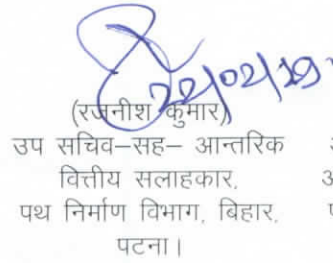 22/02/19
(रजनीश कुमार)
उप सचिव–सह– आन्तरिक
वित्तीय सलाहकार,
पथ निर्माण विभाग, बिहार,
पटना।